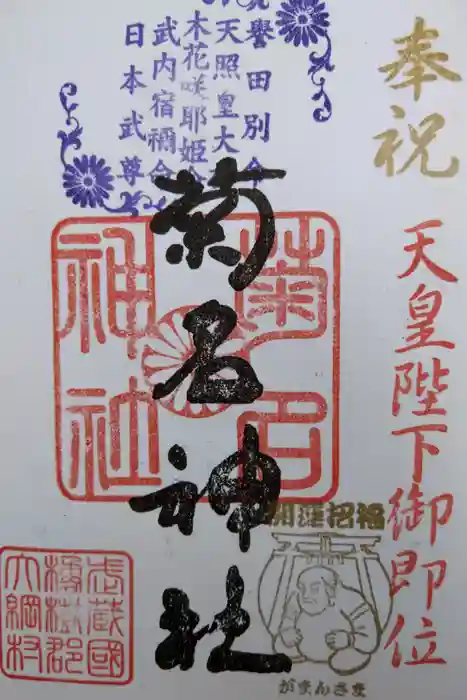 奉祝
天皇陛下御即位
誉田別命
天照皇大
木花咲耶姫命
武内宿禰命
日本武尊
菊名神社
菊名
神社
開運招福
がまんさま
武蔵國
橘樹郡
大綱村